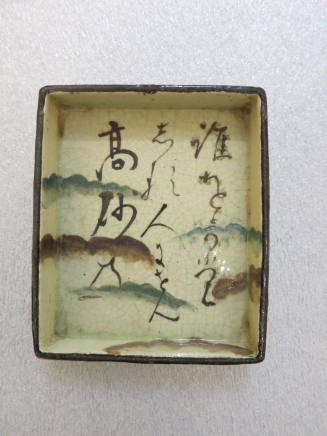 誰をかも
しる人にせん
高砂乃